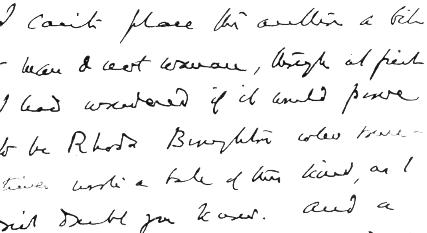 I can't place this author a bit
man & not woman, though at first
I had wondered if it would prove
to be Rhoda Broughton who some-
times wrote a tale of this kind, as I
doubt you know. And a